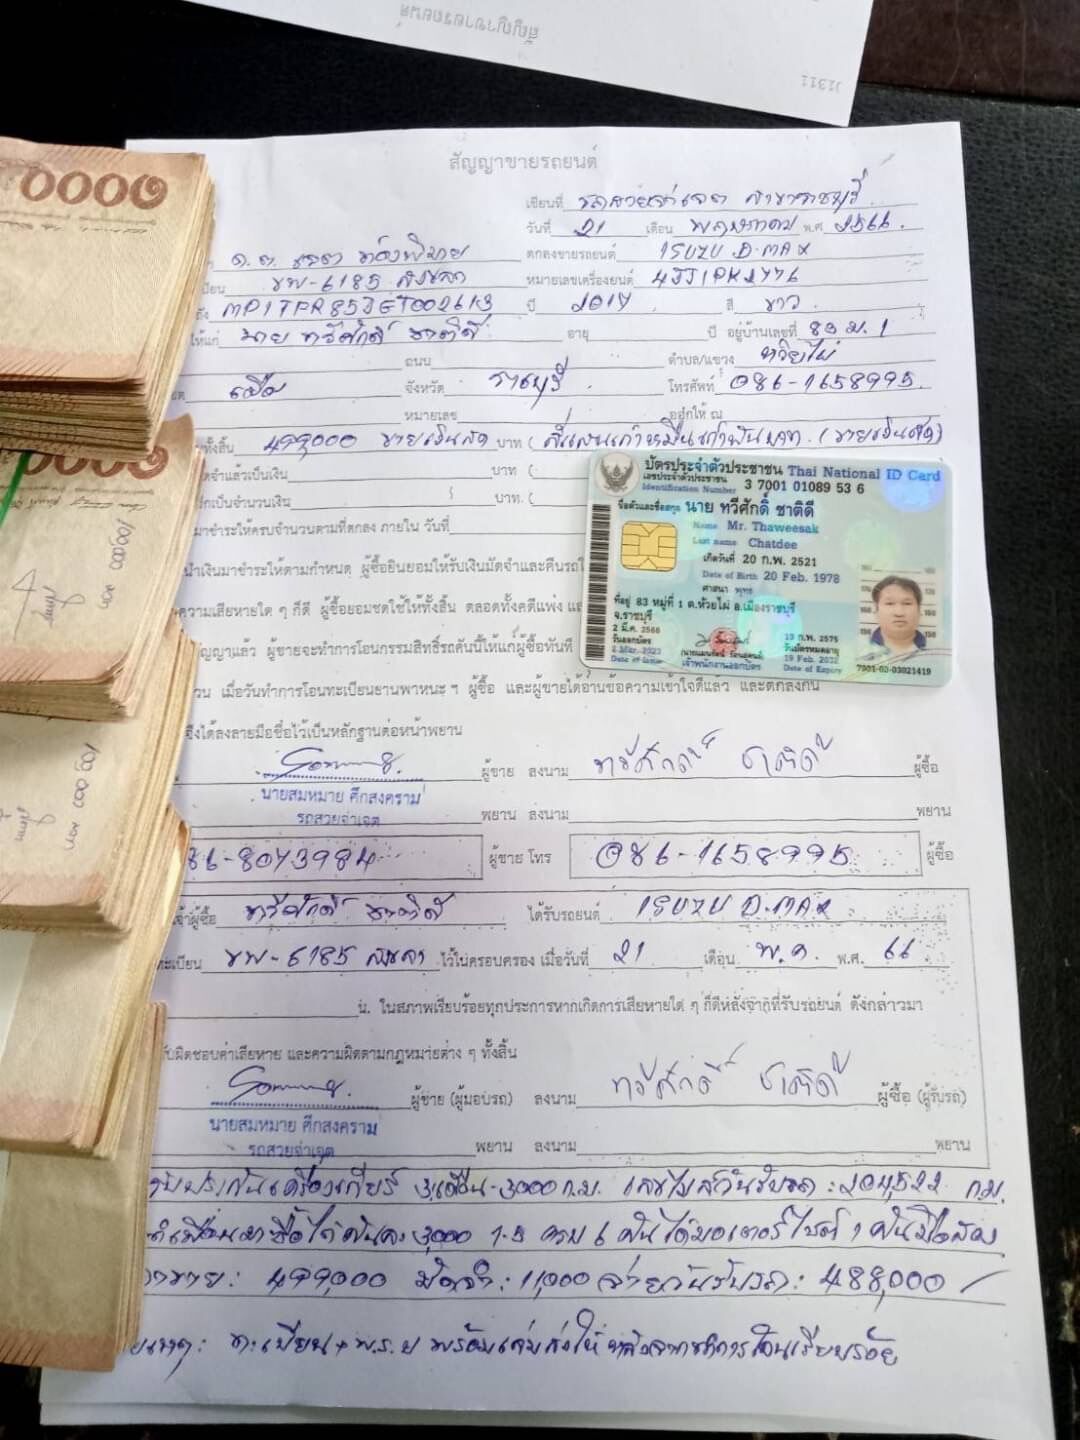 สัญญาขายรถยนต์
สัญญาขายรถยนต์
เขียนที่ รถสวยจ่าเจต สาขาราชบุรี
วันที่ 21 เดือน พฤษภาคม พ.ศ 2566.
ด.ต. เจตต ตกลงขายรถยนต์ ISUZU D-MAX
6185 สงขลา หมายเลขเครื่องยนต์
ปี 2014 สี ขาว
ให้แก่ นาย ทวีศักดิ์ ชาติดี อายุ ปี อยู่บ้านเลขที่ 83 ม.1
ถนน ตำบล/แขวง ห้วยไผ่
เมือง จังหวัด ราชบุรี โทรศัพท์ 086-1658995
หมายเลข ออกให้ ณ
ทั้งสิ้น 499,000 ขายเงินสด บาท (สี่แสนเก้าหมื่นเก้าพันบาท. (ขายเงินสด)
ดจำแล้วเป็นเงิน บาท (
อีกเป็นจำนวนเงิน บาท. (
มาชำระให้ครบจำนวนตามที่ตกลง ภายใน วันที่
นำเงินมาชำระให้ตามกำหนด ผู้ซื้อยินยอมให้รับเงินมัดจำและคืนรถ
ความเสียหายใด ๆ ก็ดี ผู้ซื้อยอมชดใช้ให้ทั้งสิ้น ตลอดทั้งคดีแพ่ง
ญญาแล้ว ผู้ขายจะทำการโอนกรรมสิทธิ์รถคันนี้ให้แก่ผู้ซื้อทันที
วน เมื่อวันทำการโอนทะเบียนยานพาหนะ ฯ ผู้ซื้อ และผู้ขายได้อ่านข้อความเข้าใจดีแล้ว และตกลงกัน
จึงได้ลงลายมือชื่อไว้เป็นหลักฐานต่อหน้าพยาน
บัตรประจำตัวประชาชน Thai National ID Card
เลขประจำตัวประชาชน 3 7001 01089 53 6
Identification Number
ชื่อตัวและชื่อสกุล นาย ทวีศักดิ์ ชาติดี
Name Mr. Thaweesak
Last name Chatdee
เกิดวันที่ 20 ก.พ. 2521
Date of Birth 20 Feb. 1978
ศาสนา พุทธ
ที่อยู่ 83 หมู่ที่ 1 ต.ห้วยไผ่ อ.เมืองราชบุรี
จ.ราชบุรี
2 มี.ค. 2566
วันออกบัตร
2 Mar. 2023
Date of Issue
เจ้าพนักงานออกบัตร
19 ก.พ. 2575
วันบัตรหมดอายุ
19 Feb. 2032
Date of Expiry
7001-03-03021419
ผู้ขาย ลงนาม ทวีศักดิ์ ชาติดี ผู้ซื้อ
นายสมหมาย ศึกสงคราม
รถสวยจ่าเจต พยาน ลงนาม พยาน
ผู้ขาย โทร 086-1658995 ผู้ซื้อ
เจ้าผู้ซื้อ ทวีศักดิ์ ชาติดี ได้รับรถยนต์ ISUZU D-MAX
ทะเบียน 6185 สงขลา ไว้ในครอบครอง เมื่อวันที่ 21 เดือน พ.ค. พ.ศ. 66
น. ในสภาพเรียบร้อยทุกประการหากเกิดการเสียหายใด ๆ ก็ดีหลังจากที่รับรถยนต์ ดังกล่าวมา
รับผิดชอบค่าเสียหาย และความผิดตามกฎหมายต่าง ๆ ทั้งสิ้น
ผู้ขาย (ผู้มอบรถ) ลงนาม ทวีศักดิ์ ชาติดี ผู้ซื้อ (ผู้รับรถ)
นายสมหมาย ศึกสงคราม
รถสวยจ่าเจต พยาน ลงนาม พยาน
รับประกันเครื่องเกียร์ 3เดือน-3000 ก.ม. เลขไมล์วันรับรถ : 204,522 ก.ม.
เพื่อนมาซื้อได้คันละ 3,000 1-5 ครบ 6 คันได้มอเตอร์ไซค์ 1 คันมือสอง
ขาย : 499,000 มัดจำ : 11,000 จ่ายวันรับรถ : 488,000
ทะเบียน + พ.ร.บ พร้อมเล่มส่งให้ หลังจากทำการโอนเรียบร้อย
100,000 บาท
100,000 บาท